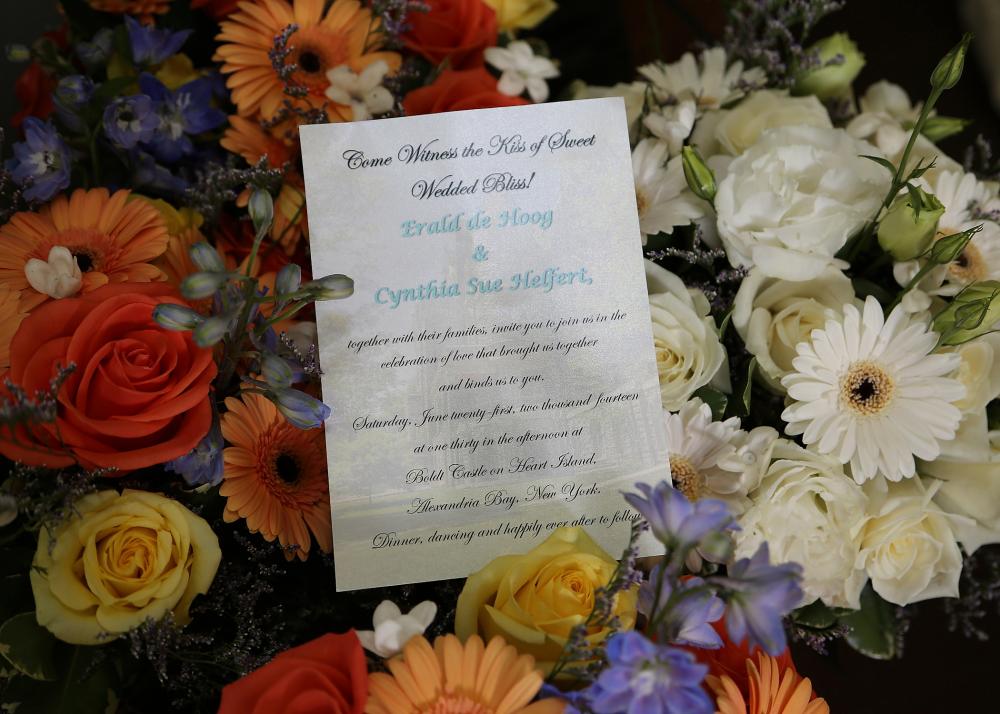 Come Witness the Kiss of Sweet
Wedded Bliss!
Erald de Hoog
&
Cynthia Sue Helfert,
together with their families, invite you to join us in the
celebration of love that brought us together
and binds us to you.
Saturday, June twenty-first, two thousand fourteen
at one thirty in the afternoon at
Boldt Castle on Heart Island,
Alexandria Bay, New York.
Dinner, dancing and happily ever after to follow